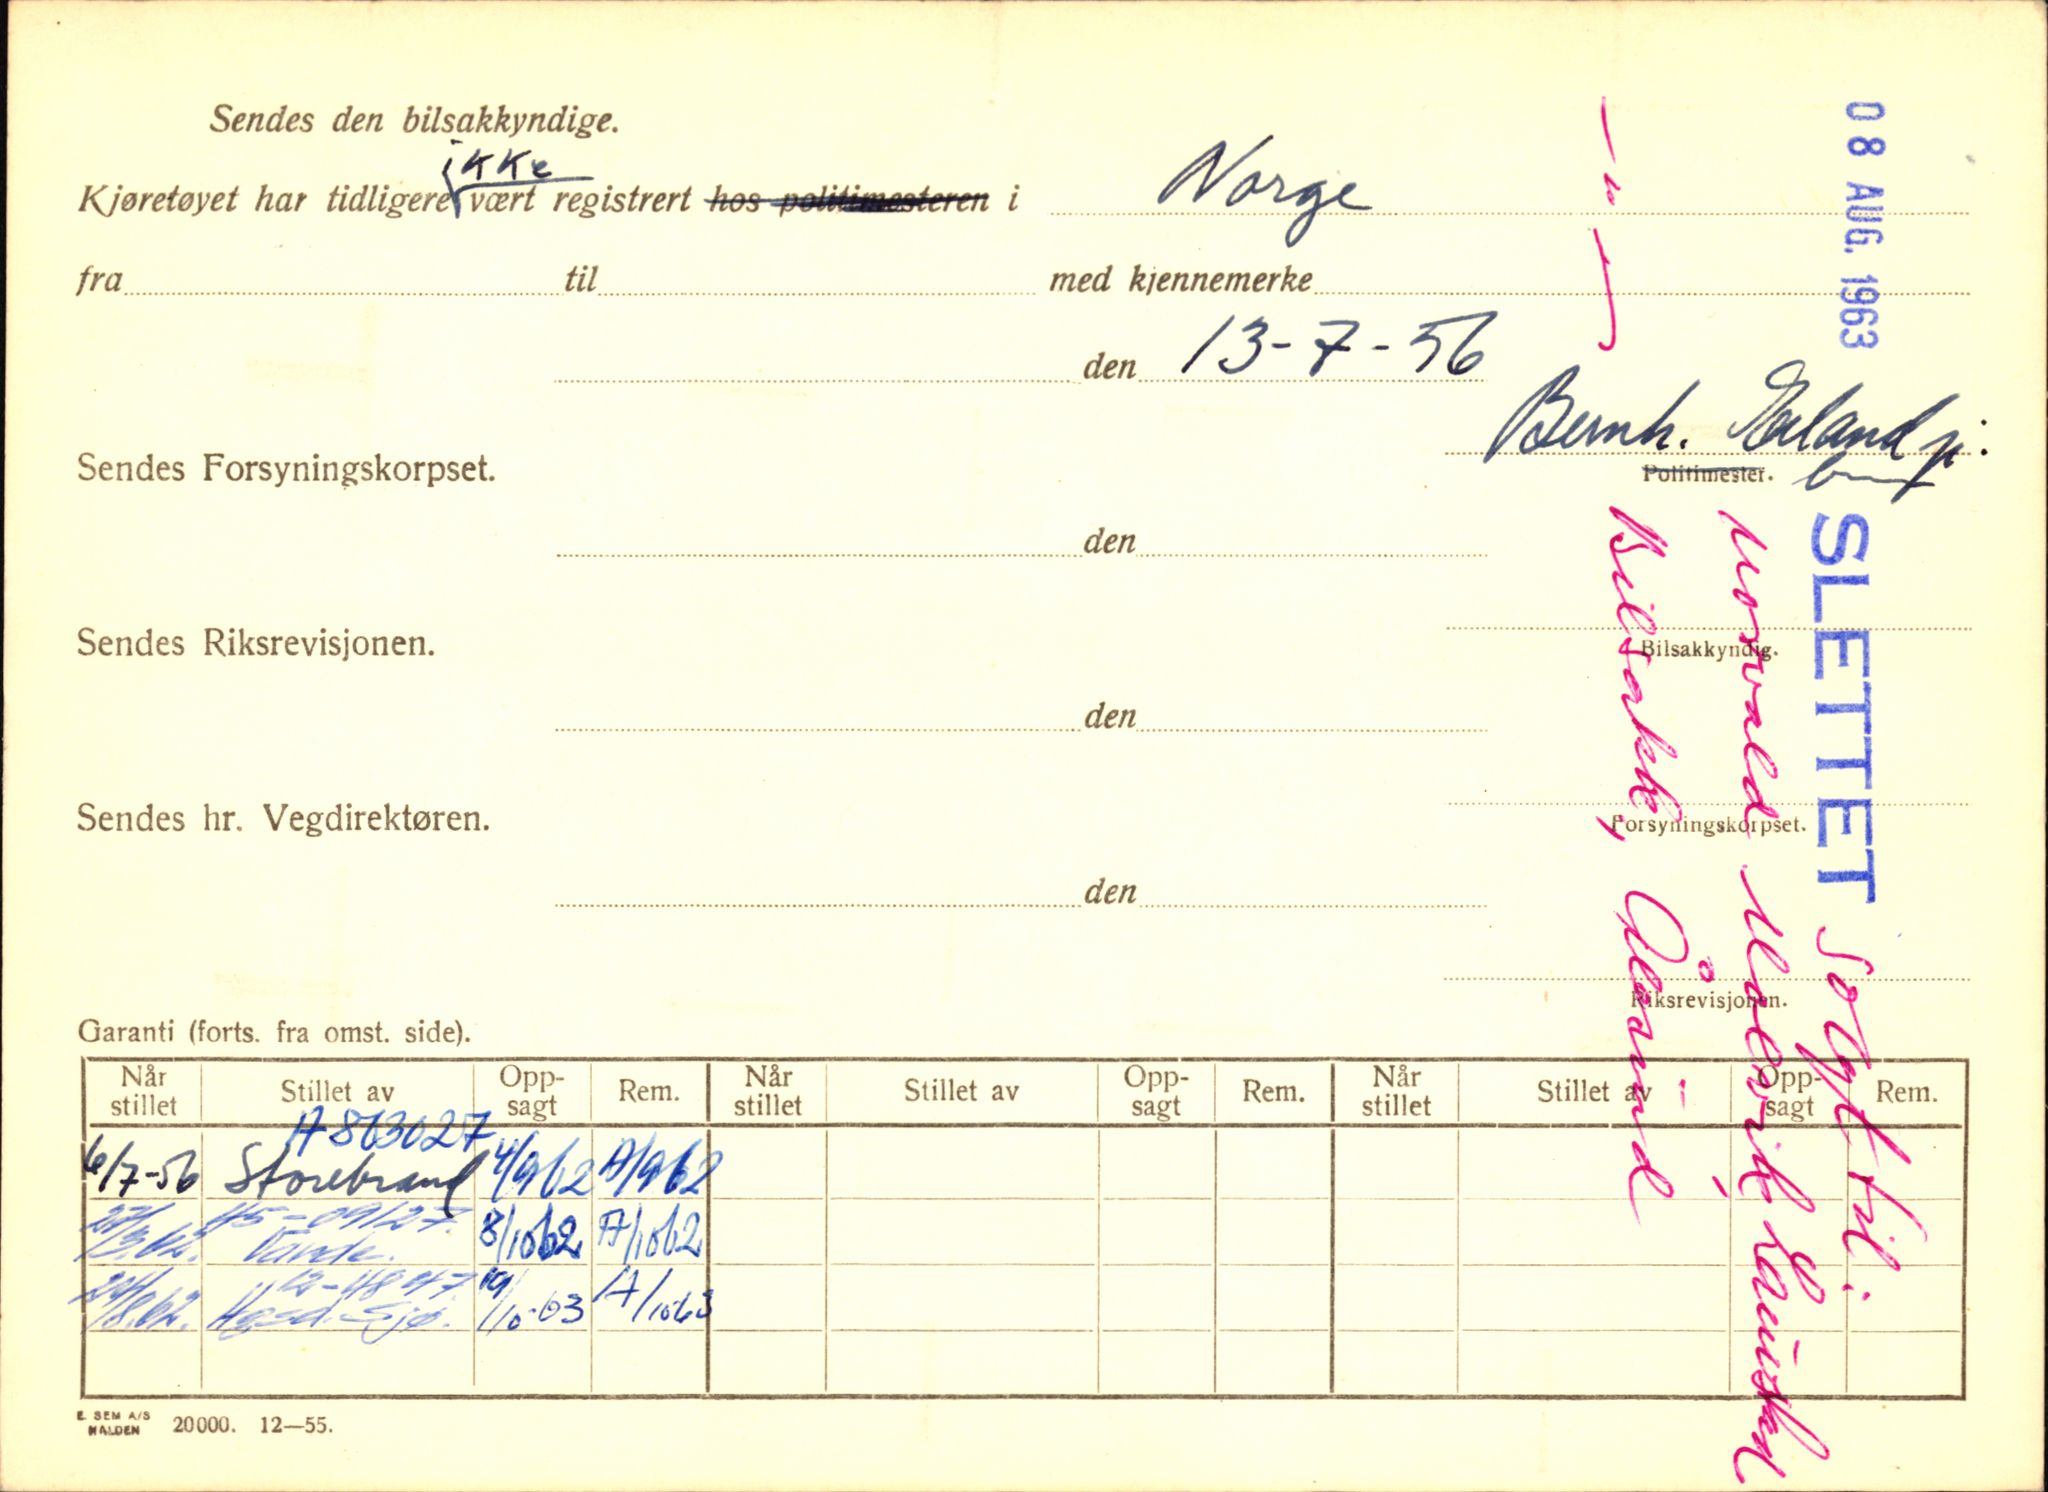 Sendes den bilsakkyndige.
Kjøretøyet har tidligere ikke vært registrert hos politimesteren i Norge
fra til med kjennemerke
den 13-7-56
Bernh.
Politimester.
Sendes Forsyningskorpset.
den
Bilsakkyndig.
Sendes Riksrevisjonen.
den
Forsyningskorpset.
Sendes hr. Vegdirektøren.
den
Riksrevisjonen.
Garanti (forts. fra omst. side).
Når stillet Stillet av Opp-sagt Rem. Når stillet Stillet av Opp-sagt Rem. Når stillet Stillet av Opp-sagt Rem.
A 863027
6/7-56 Storebrand 4/9 62 A/9 62
45-09127.
27/3.62. 8/10 62 A/10 62
12-4847.
24/8.62. 10-63 A/10-63
E. SEM A/S
HALDEN
20000. 12—55.
08 AUG. 1963
SLETTET
Solgt til:
Bilsakk,